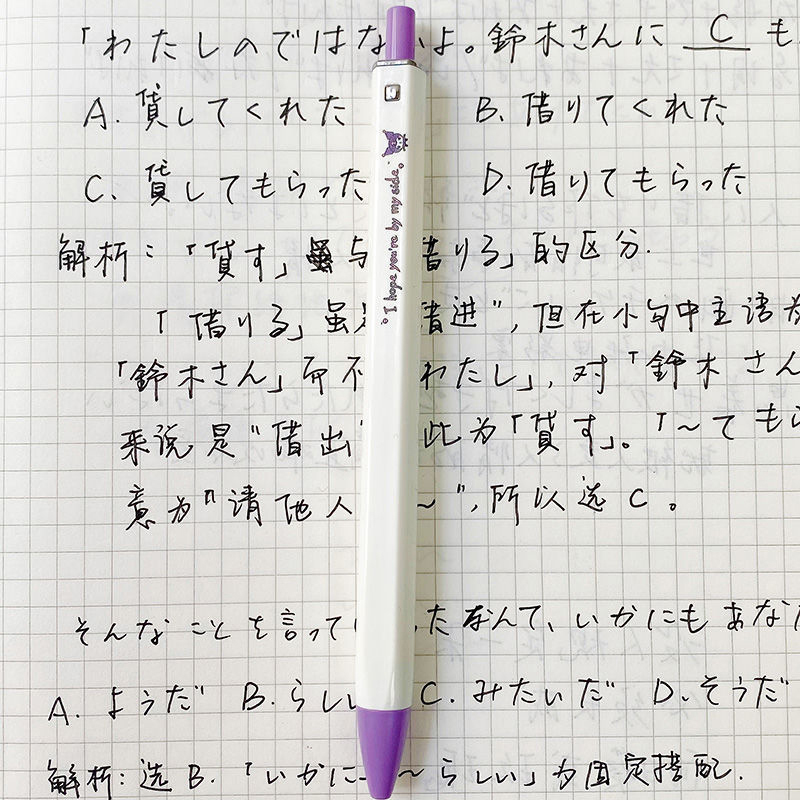 「わたしのではな よ。鈴木さんに C も
A. 貸してくれた B. 借りてくれた
C. 貸してもらった D. 借りてもらった
解析：「貸す」虽与 借りる」的区分.
「借りる」虽 借进"，但在小句中主语为
「鈴木さん」而不 わたし」，对「鈴木さん
来说是"借出" 此为「貸す」。「～ても
意为"请他人 ～"，所以选 C。
そんなことを言って たなんて、いかにもあな
A. ようだ B. らしい C. みたいだ D. そうだ
解析：选 B. 「いかに ～らしい」为固定搭配.
I hope you're by my side.